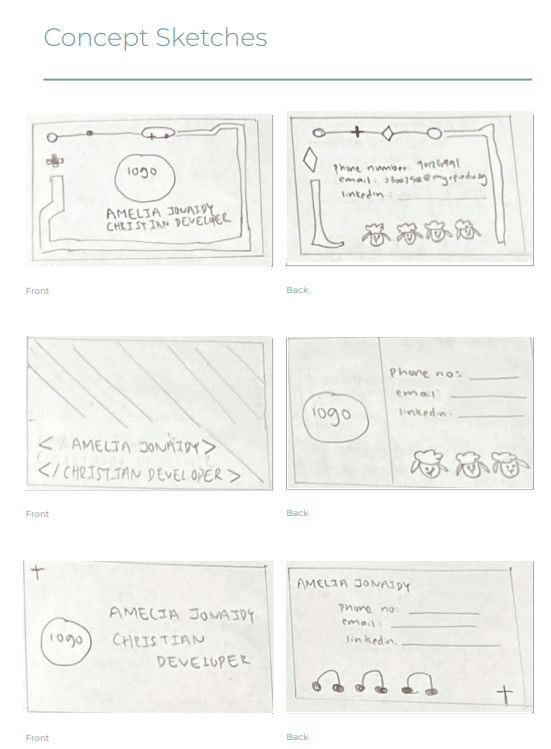 Concept Sketches
logo
AMELIA JONAIDY
CHRISTIAN DEVELOPER
Front
phone number:
email:
linkedin:
Back
< AMELIA JONAIDY>
</CHRISTIAN DEVELOPER >
Front
logo
phone no:
email:
linkedin:
Back
logo
AMELIA JONAIDY
CHRISTIAN
DEVELOPER
Front
AMELIA JONAIDY
phone no:
email:
linkedin:
Back